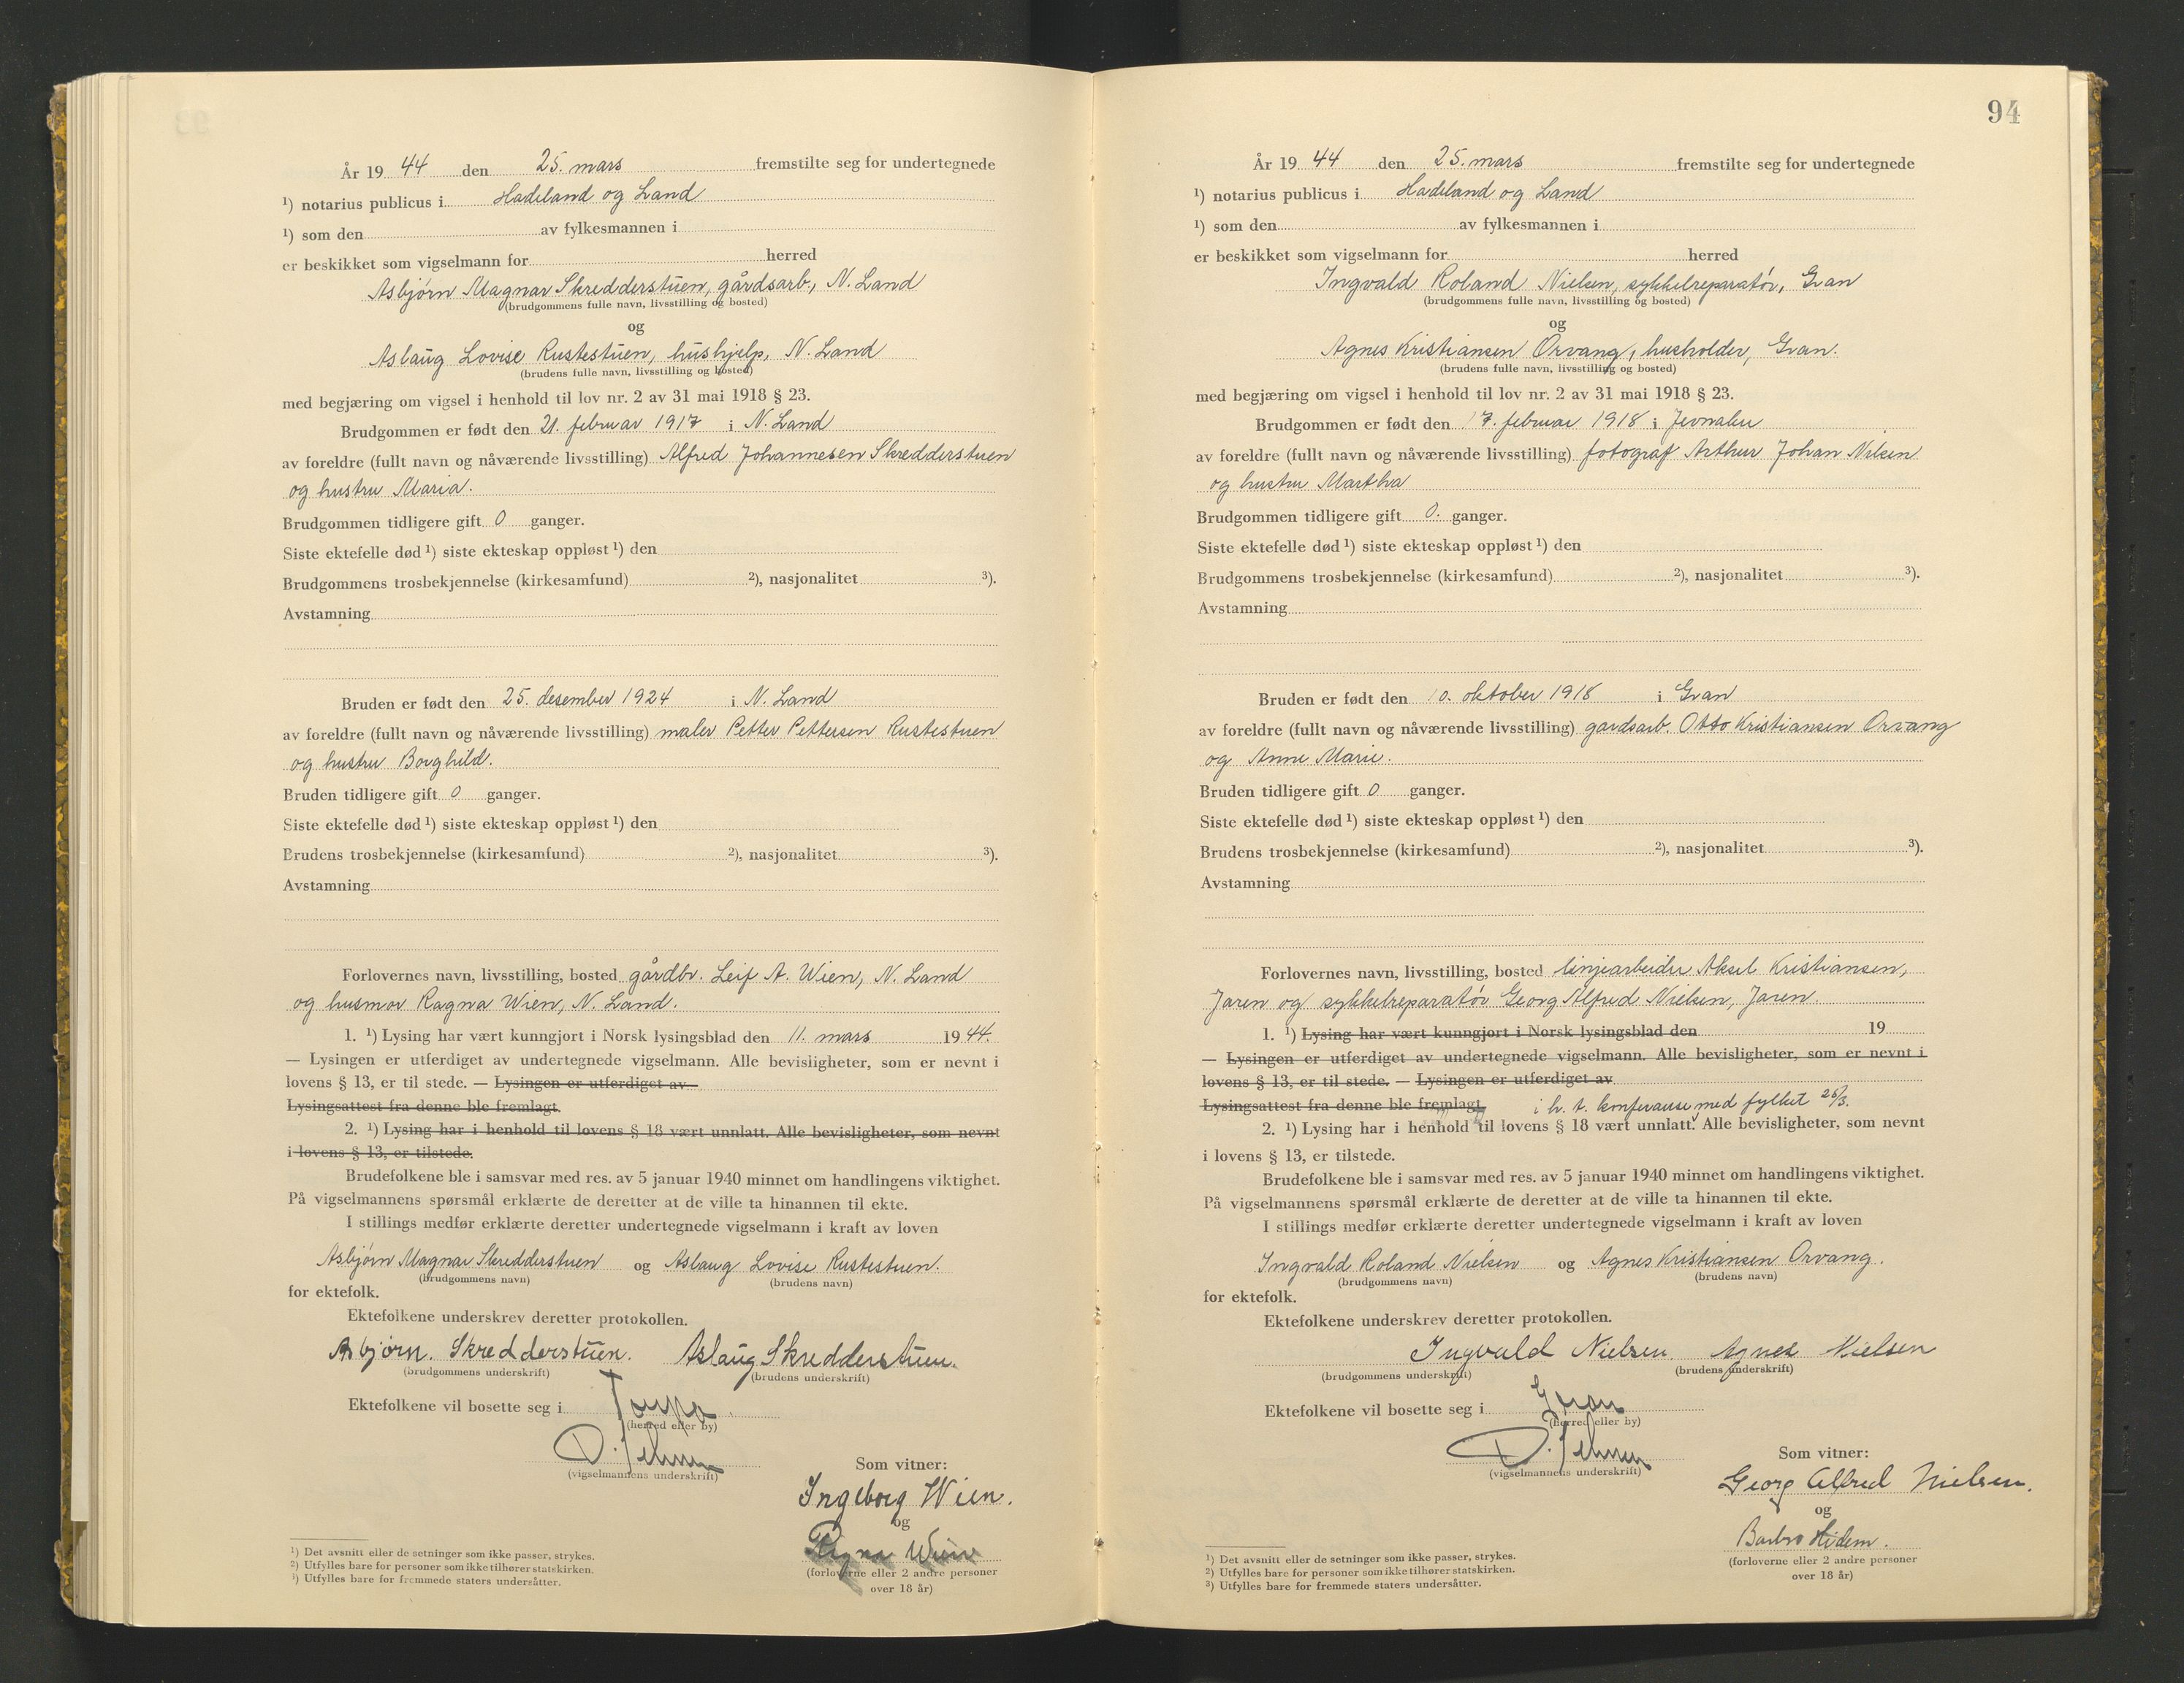 År 19 44 den 25. mars fremstilte seg for undertegnede
¹) notarius publicus i Hadeland og Land
¹) som den av fylkesmannen i
er beskikket som vigselmann for herred
Asbjørn Magnar Skredderstuen, gårdsarb., N. Land
(brudgommens fulle navn, livsstilling og bosted)
og
Aslaug Lovise Rustestuen, hushjelp, N. Land
(brudens fulle navn, livsstilling og bosted)
med begjæring om vigsel i henhold til lov nr. 2 av 31 mai 1918 § 23.
Brudgommen er født den 21. februar 1917 i N. Land
av foreldre (fullt navn og nåværende livsstilling) Alfred Johannesen Skredderstuen
og hustru Maria.
Brudgommen tidligere gift 0 ganger.
Siste ektefelle død ¹) siste ekteskap oppløst ¹) den
Brudgommens trosbekjennelse (kirkesamfund) ²), nasjonalitet ³).
Avstamning
Bruden er født den 25. desember 1924 i N. Land
av foreldre (fullt navn og nåværende livsstilling) maler Petter Pettersen Rustestuen
og hustru Borghild.
Bruden tidligere gift 0 ganger.
Siste ektefelle død ¹) siste ekteskap oppløst ¹) den
Brudens trosbekjennelse (kirkesamfund) ²), nasjonalitet ³).
Avstamning
Forlovernes navn, livsstilling, bosted gårdbr. Leif A. Wien, N. Land
og husmor Ragna Wien, N. Land.
1. ¹) Lysing har vært kunngjort i Norsk lysingsblad den 11. mars 1944.
— Lysingen er utferdiget av undertegnede vigselmann. Alle bevisligheter, som er nevnt i
lovens § 13, er til stede. — Lysingen er utferdiget av
Lysingsattest fra denne ble fremlagt.
2. ¹) Lysing har i henhold til lovens § 18 vært unnlatt. Alle bevisligheter, som nevnt
i lovens § 13, er tilstede.
Brudefolkene ble i samsvar med res. av 5 januar 1940 minnet om handlingens viktighet.
På vigselmannens spørsmål erklærte de deretter at de ville ta hinannen til ekte.
I stillings medfør erklærte deretter undertegnede vigselmann i kraft av loven
Asbjørn Magnar Skredderstuen og Aslaug Lovise Rustestuen.
(brudgommens navn) (brudens navn)
for ektefolk.
Ektefolkene underskrev deretter protokollen.
Asbjørn. Skredderstuen. Aslaug Skredderstuen.
(brudgommens underskrift) (brudens underskrift)
Ektefolkene vil bosette seg i Torpa
(herred eller by)
(vigselmannens underskrift)
Som vitner:
Ingeborg Wien.
og
Ragna Wien
(forloverne eller 2 andre personer
over 18 år)
¹) Det avsnitt eller de setninger som ikke passer, strykes.
²) Utfylles bare for personer som ikke tilhører statskirken.
³) Utfylles bare for fremmede staters undersåtter.
94
År 19 44 den 25. mars fremstilte seg for undertegnede
¹) notarius publicus i Hadeland og Land
¹) som den av fylkesmannen i
er beskikket som vigselmann for herred
Ingvald Roland Nielsen, sykkelreparatør, Gran
(brudgommens fulle navn, livsstilling og bosted)
og
Agnes Kristiansen Orvang, husholder, Gran.
(brudens fulle navn, livsstilling og bosted)
med begjæring om vigsel i henhold til lov nr. 2 av 31 mai 1918 § 23.
Brudgommen er født den 17. februar 1918 i Jevnaker
av foreldre (fullt navn og nåværende livsstilling) fotograf Arthur Johan Nilsen
og hustru Martha
Brudgommen tidligere gift 0. ganger.
Siste ektefelle død ¹) siste ekteskap oppløst ¹) den
Brudgommens trosbekjennelse (kirkesamfund) ²), nasjonalitet ³).
Avstamning
Bruden er født den 10. oktober 1918 i Gran
av foreldre (fullt navn og nåværende livsstilling) gardsarb. Otto Kristiansen Orvang
og Anne Marie.
Bruden tidligere gift 0 ganger.
Siste ektefelle død ¹) siste ekteskap oppløst ¹) den
Brudens trosbekjennelse (kirkesamfund) ²), nasjonalitet ³).
Avstamning
Forlovernes navn, livsstilling, bosted linjearbeider Aksel Kristiansen,
Jaren og sykkelreparatør Georg Alfred Nielsen, Jaren.
1. ¹) Lysing har vært kunngjort i Norsk lysingsblad den 19
— Lysingen er utferdiget av undertegnede vigselmann. Alle bevisligheter, som er nevnt i
lovens § 13, er til stede. — Lysingen er utferdiget av
Lysingsattest fra denne ble fremlagt. i h. t. konferanse med fylket 25/3.
2. ¹) Lysing har i henhold til lovens § 18 vært unnlatt. Alle bevisligheter, som nevnt
i lovens § 13, er tilstede.
Brudefolkene ble i samsvar med res. av 5 januar 1940 minnet om handlingens viktighet.
På vigselmannens spørsmål erklærte de deretter at de ville ta hinannen til ekte.
I stillings medfør erklærte deretter undertegnede vigselmann i kraft av loven
Ingvald Roland Nielsen og Agnes Kristiansen Orvang.
(brudgommens navn) (brudens navn)
for ektefolk.
Ektefolkene underskrev deretter protokollen.
Ingvald Nielsen. Agnes Nielsen
(brudgommens underskrift) (brudens underskrift)
Ektefolkene vil bosette seg i Gran
(herred eller by)
(vigselmannens underskrift)
Som vitner:
Georg Alfred Nielsen.
og
Barbro Hidem.
(forloverne eller 2 andre personer
over 18 år)
¹) Det avsnitt eller de setninger som ikke passer, strykes.
²) Utfylles bare for personer som ikke tilhører statskirken.
³) Utfylles bare for fremmede staters undersåtter.